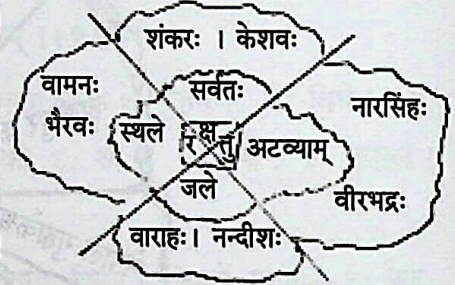 शंकरः । केशवः
वामनः
भैरवः
सर्वतः
नारसिंहः
स्थले
रक्षतु
अटव्याम्
जले
वीरभद्रः
वाराहः। नन्दीशः